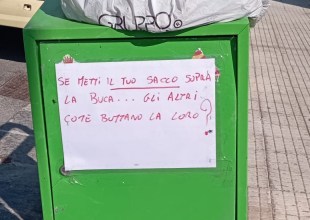 GRUPPO
SE METTI IL TUO SACCO SOPRA
LA BUCA... GLI ALTRI
COME BUTTANO LA LORO?